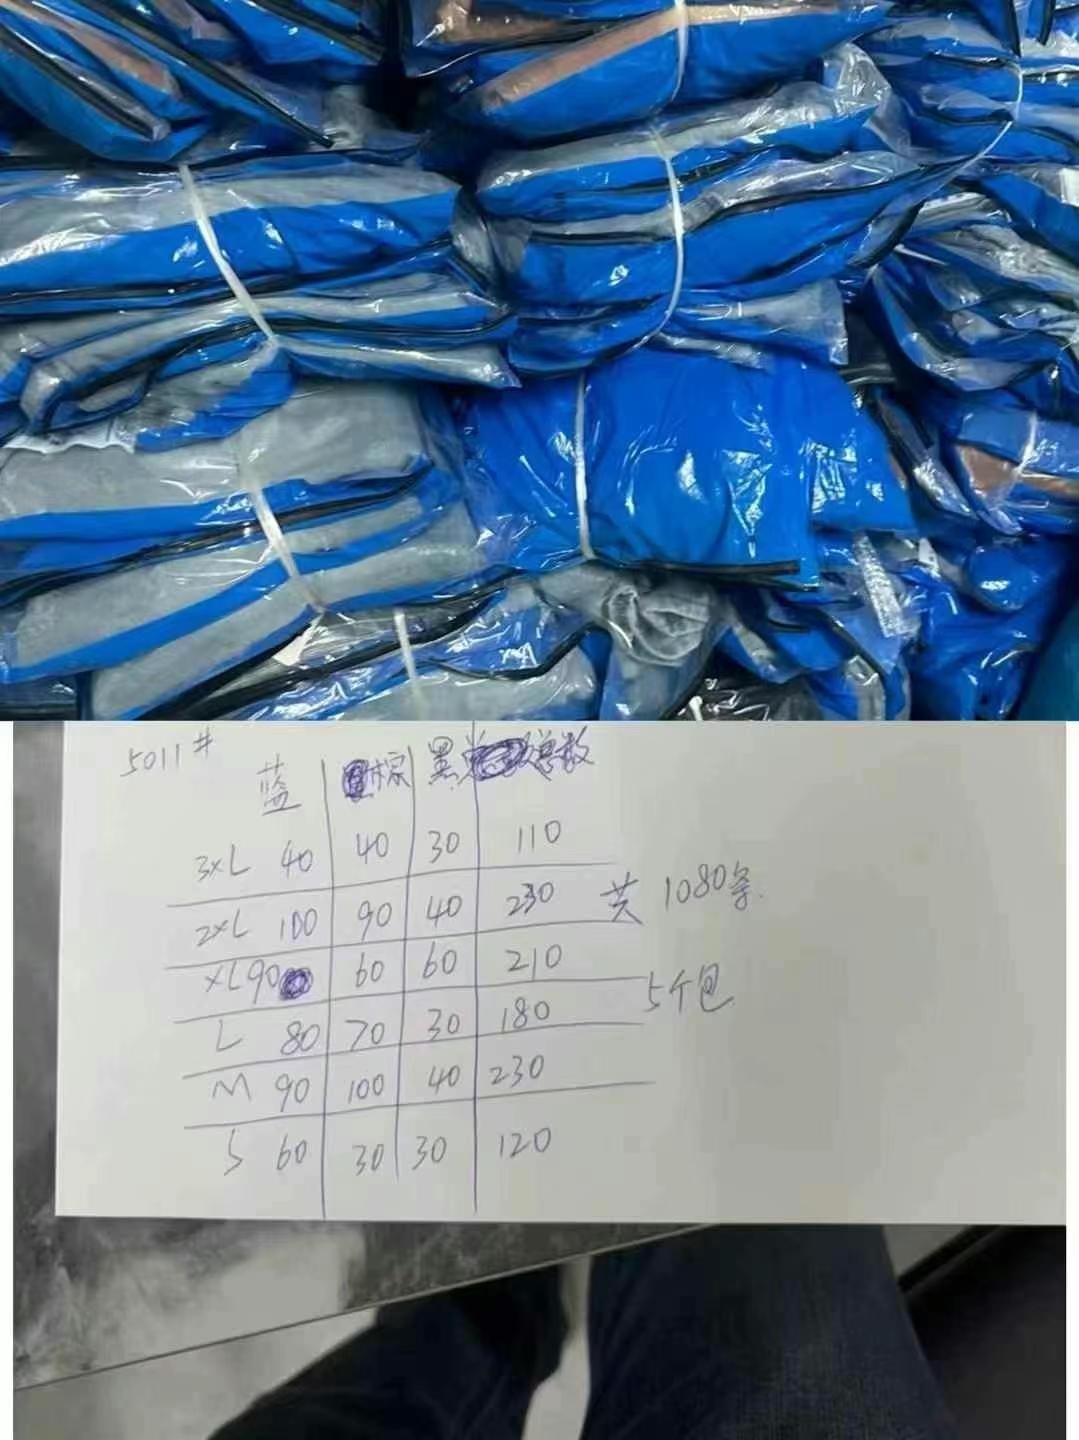 5011#
蓝 棕 黑 总数
3XL 40 40 30 110
2XL 100 90 40 230
XL 90 60 60 210
L 80 70 30 180
M 90 100 40 230
S 60 30 30 120
共 1080条.
5个包